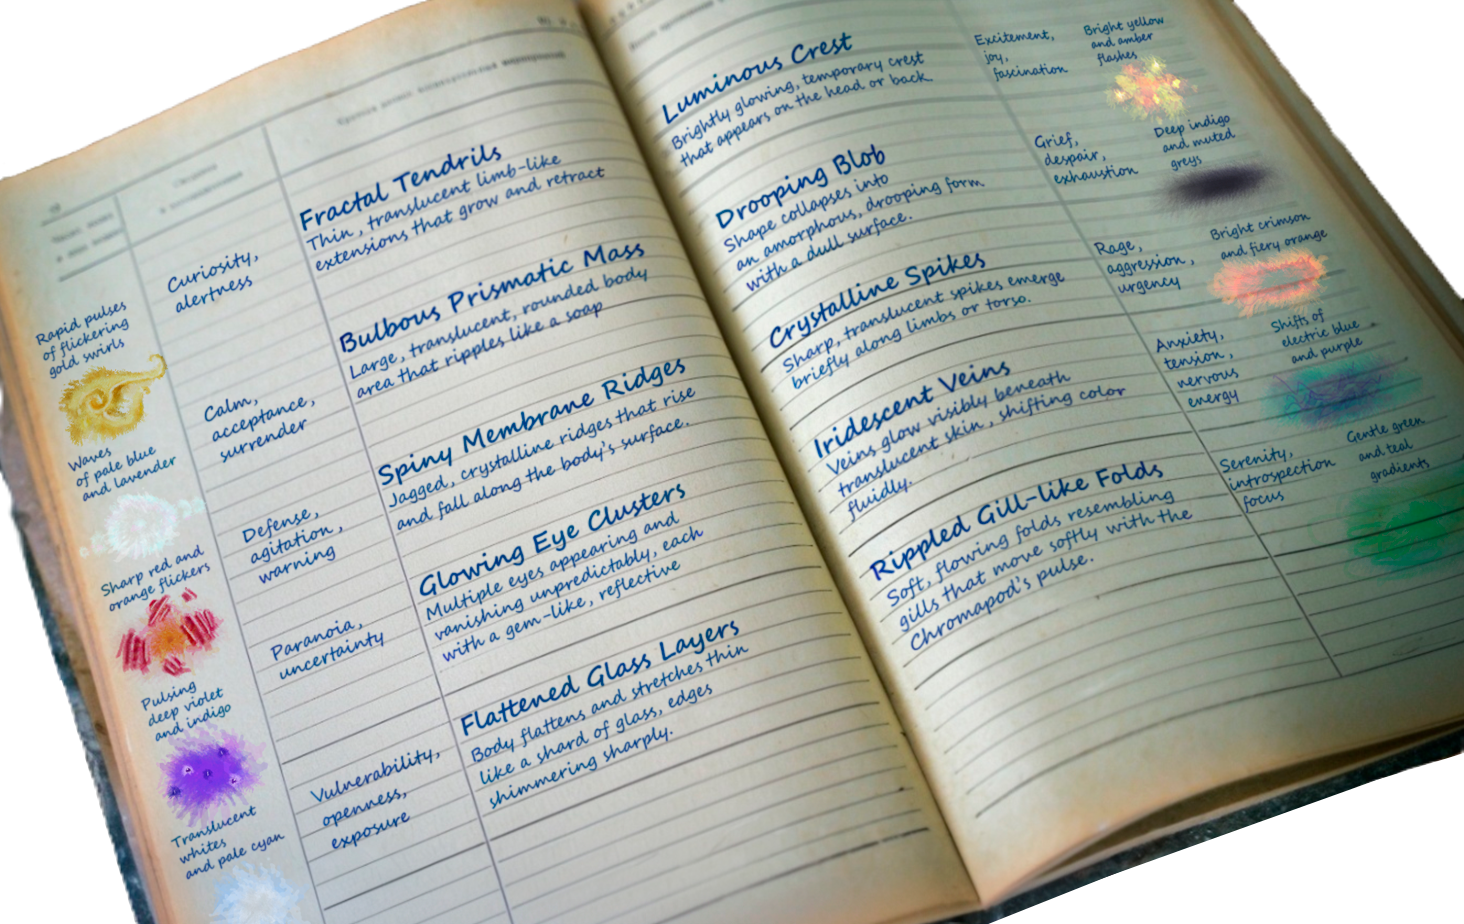 Fractal Tendrils
Thin, translucent limb-like
extensions that grow and retract
Curiosity,
alertness
Rapid pulses
of flickering
gold swirls
Bulbous Prismatic Mass
Large, translucent, rounded body
area that ripples like a soap
Calm,
acceptance,
surrender
Waves
of pale blue
and lavender
Spiny Membrane Ridges
Jagged, crystalline ridges that rise
and fall along the body's surface.
Defense,
agitation,
warning
Sharp red and
orange flickers
Glowing Eye Clusters
Multiple eyes appearing and
vanishing unpredictably, each
with a gem-like, reflective
Paranoia,
uncertainty
Pulsing
deep violet
and indigo
Flattened Glass Layers
Body flattens and stretches thin
like a shard of glass, edges
shimmering sharply.
Vulnerability,
openness,
exposure
Translucent
whites
and pale cyan
Luminous Crest
Brightly glowing, temporary crest
that appears on the head or back.
Excitement,
joy,
fascination
Bright yellow
and amber
flashes
Drooping Blob
Shape collapses into
an amorphous, drooping form
with a dull surface.
Grief,
despair,
exhaustion
Deep indigo
and muted
greys
Crystalline Spikes
Sharp, translucent spikes emerge
briefly along limbs or torso.
Rage,
aggression,
urgency
Bright crimson
and fiery orange
Iridescent Veins
Veins glow visibly beneath
translucent skin, shifting color
fluidly.
Anxiety,
tension,
nervous
energy
Shifts of
electric blue
and purple
Rippled Gill-like Folds
Soft, flowing folds resembling
gills that move softly with the
Chromapod's pulse.
Serenity,
introspection
focus
Gentle green
and teal
gradients